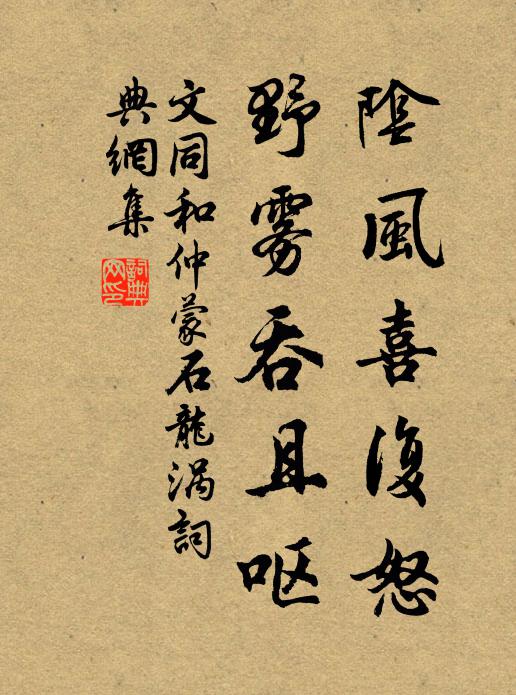 陰風喜復怒
野雾吞且呕
文同和仲蒙石龍涡詞
典網集
詞典
网印